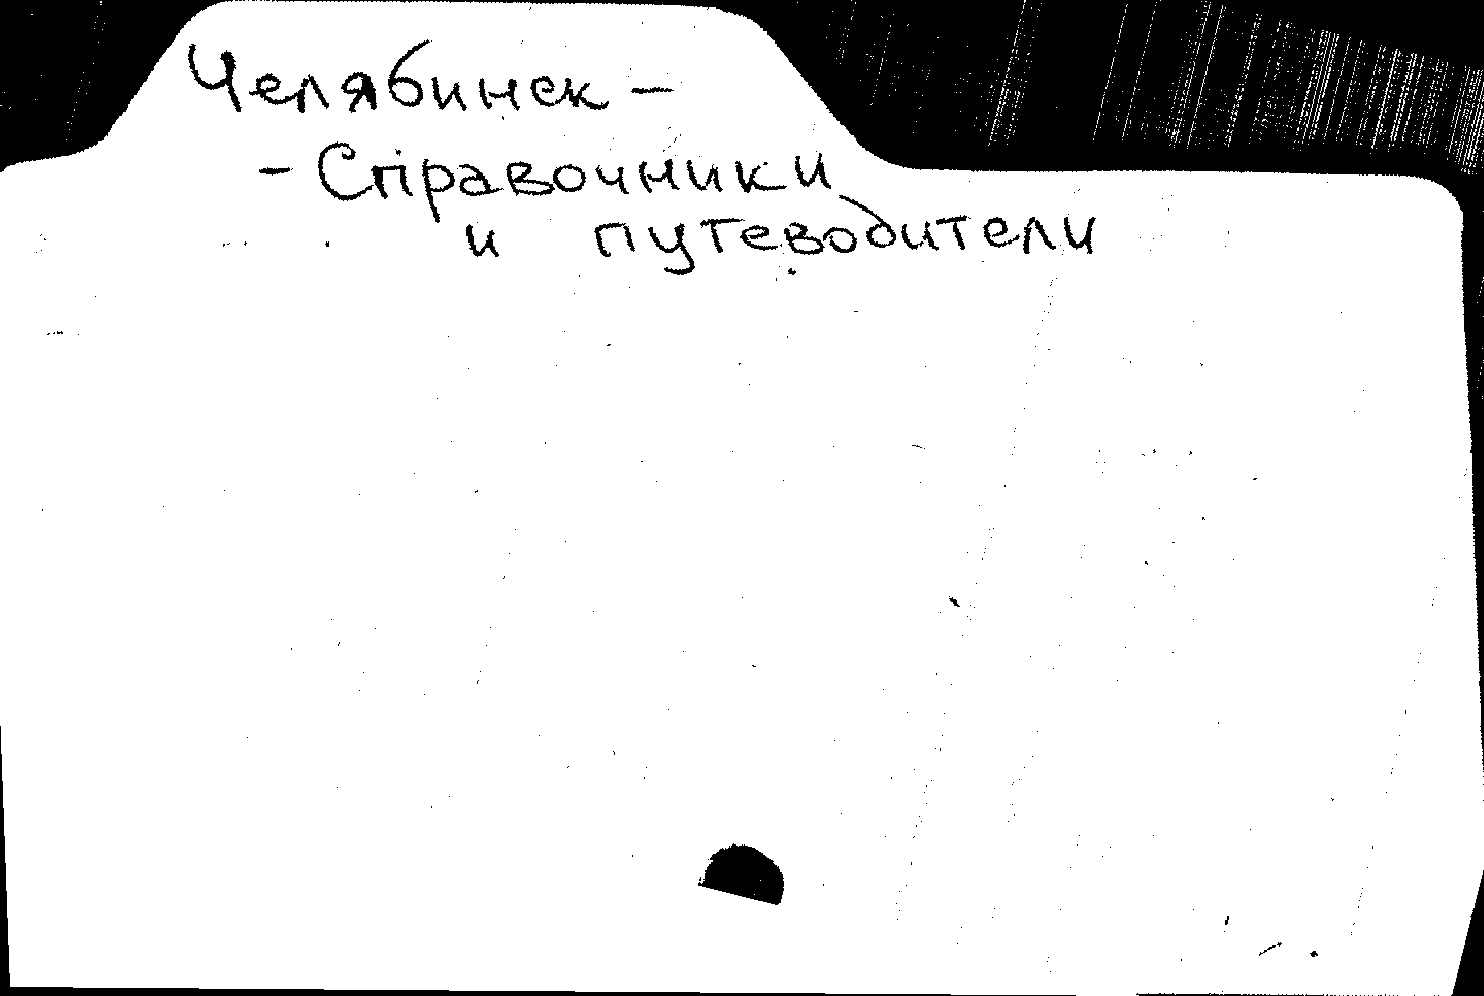 Челябинск –
– Справочники
и путеводители